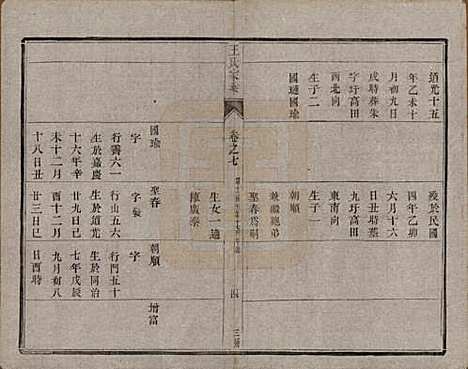 道光十五
年乙未十
月初九日
戌時葬朱
字圩高田
西北向
生子二
國璉國瑜
歿於民國
四年乙卯
六月十六
日丑時葬
九圩高田
東南向
生子一
朝順
兼繼胞弟
聖春爲嗣
生女一適
陳廣泰
王氏家乘
卷之七
四
國瑜
行霽六一
生於嘉慶
十六年辛
未十二月
十八日丑
聖春
字
行山五六
生於道光
廿九年己
酉十二月
廿三日巳
朝順
字
行門五十
生於同治
七年戊辰
九月初八
日酉時
增富